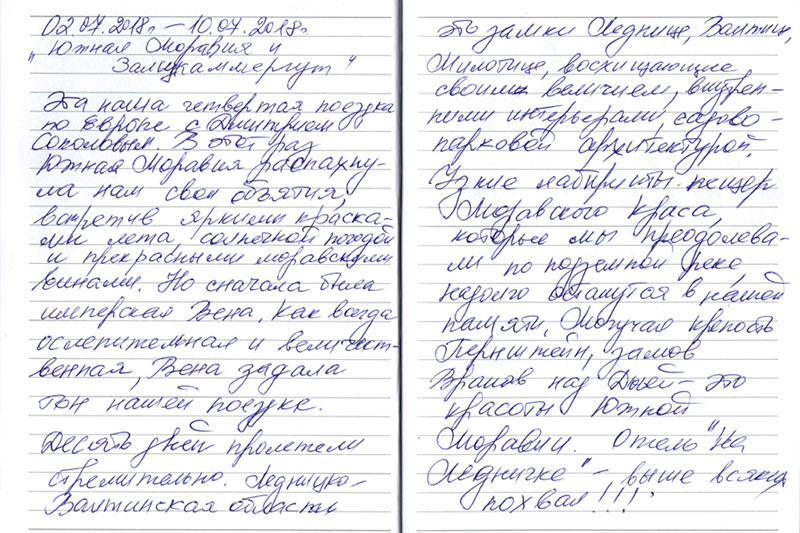 02.07.2018г – 10.07.2018г.
"Южная Моравия и
Зальцкаммергут"
Эта наша четвертая поездка
по Европе с Дмитрием
Соколовым. В этот раз
Южная Моравия распахну-
ла нам свои объятия,
встретив яркими краска-
ми лета, солнечной погодой
и прекрасными моравскими
винами. Но сначала была
имперская Вена, Как всегда
ослепительная и величест-
венная, Вена задала
тон нашей поездке.
Десять дней пролетели
стремительно. Ледницко-
Валтицская область
это замки Леднице, Валтице,
Милотице, восхищающие
своим величием, внутрен-
ними интерьерами, садово-
парковой архитектурой.
Узкие лабиринты пещер
Моравского Краса,
которые мы преодолева-
ли по подземной реке,
надолго останутся в нашей
памяти, Могучая крепость
Пернштейн, замок
Вранов над Дыей – это
красоты Южной
Моравии. Отель "На
Ледничке" – выше всяких
похвал!!!!